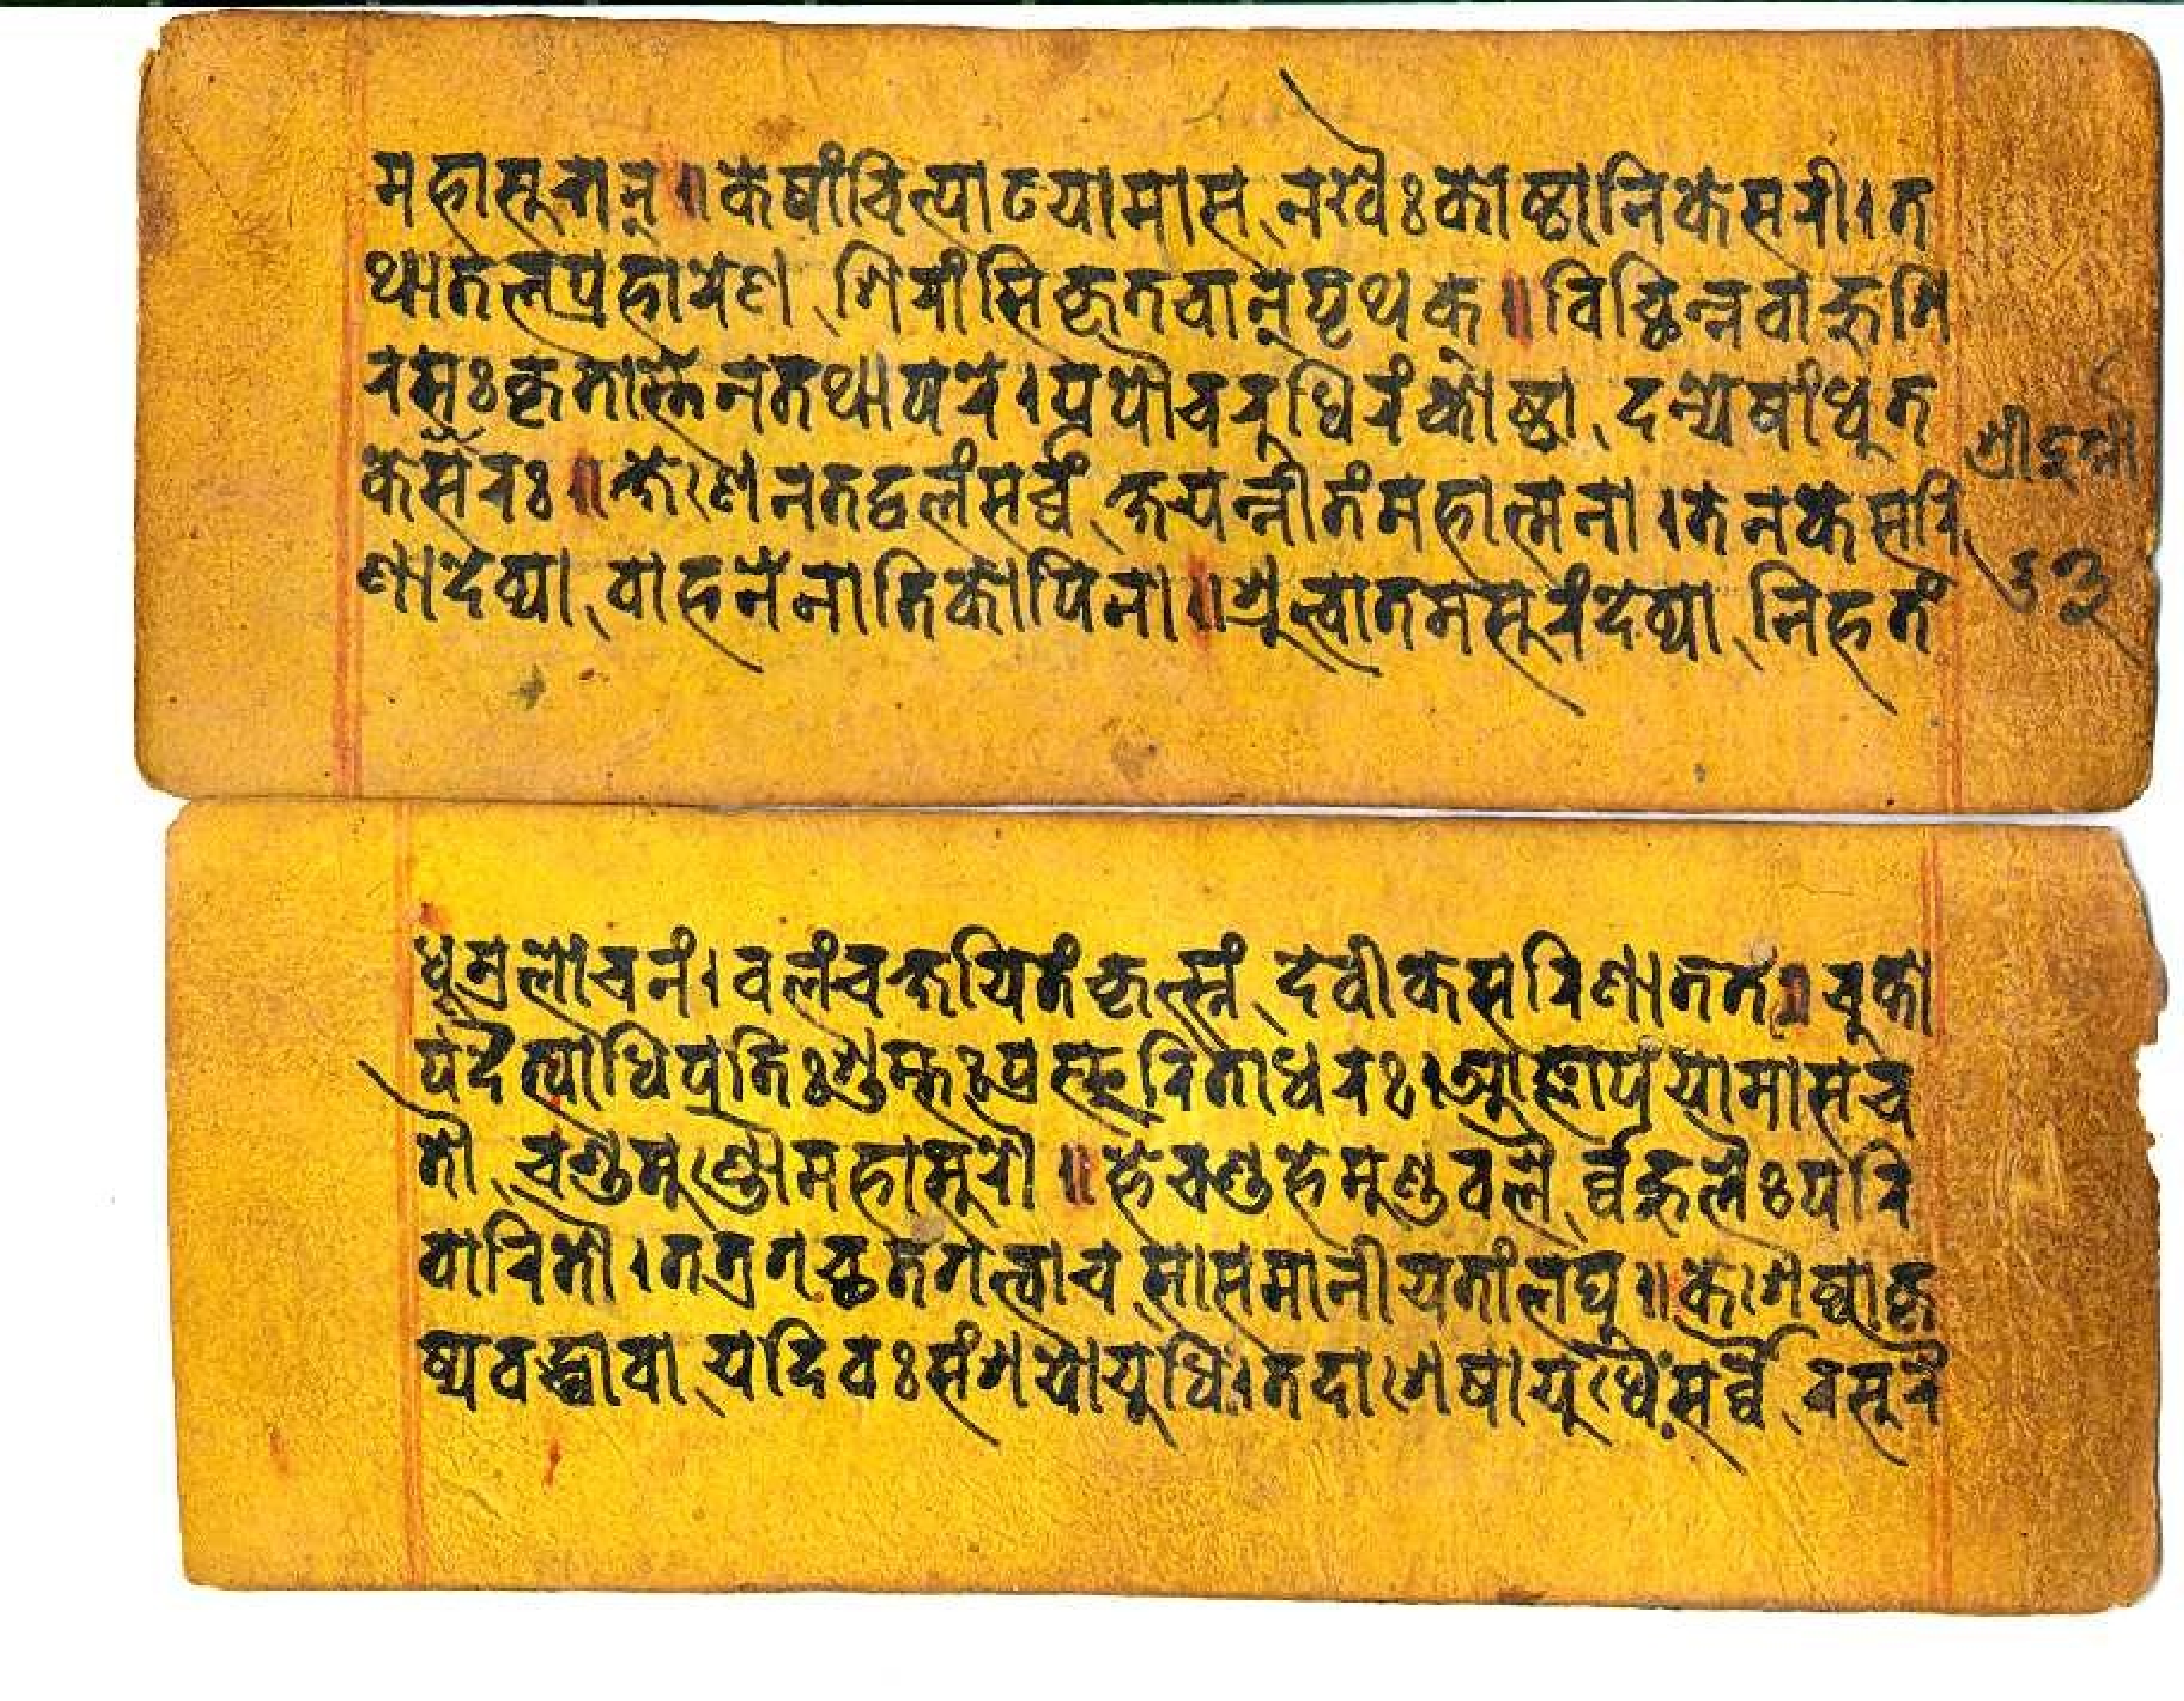 महासुरान् ॥ केषांचित्पाटयामास नखैः कोष्ठानि केसरी । त
था तलप्रहारेण शिरांसि कृतवान् पृथक् ॥ विच्छिन्नबाहुशि
रसः कृतास्तेन तथापरे । पपौ च रुधिरं कोष्ठा दन्येषां धुत
केसरः ॥ क्षणेन तद्बलं सर्व्वं क्षयन्नीतं महात्मना । तेन केसरि
णा देव्या वाहनेनातिकोपिना ॥ श्रुत्वा तमसुरं देव्या निहतं
६३
धूम्रलोचनं । बलं च क्षयितं कृत्स्नं देवीकेसरिणा ततः ॥ चुको
प दैत्याधिपतिः शुम्भः प्रस्फुरिताधरः । आज्ञापयामास च
तौ चण्डमुण्डौ महासुरौ ॥ हे चण्ड हे मुण्ड बलै र्ब्बहुलैः परि
वारितौ । तत्र गच्छत गत्वा च सा समानीयतां लघु ॥ केशेष्वाकृ
ष्य बद्ध्वा वा यदि वः संशयो युधि । तदाशेषायुधैः सर्व्वै रसुरै